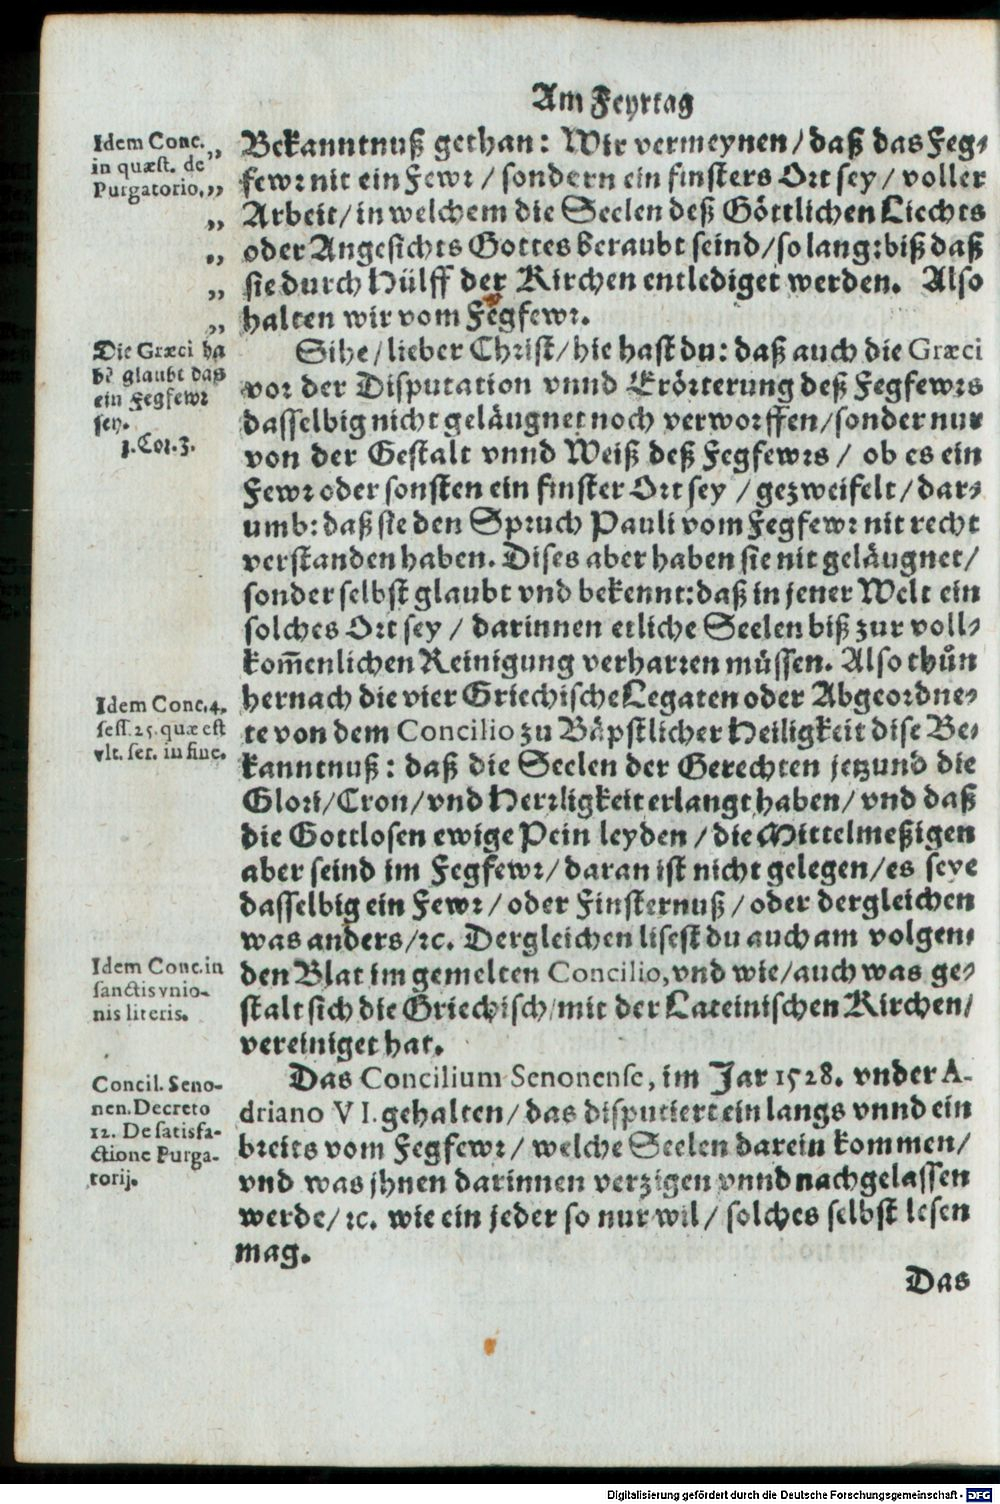 Am Feyrtag
Idem Conc. „
in quæst. de
Purgatorio. „
„
„
„
„
Bekanntnuß gethan: Wir vermeynen / daß das Feg-
fewr nit ein Fewr / sondern ein finsters Ort sey / voller
Arbeit / in welchem die Seelen deß Göttlichen Liechts
oder Angesichts Gottes beraubt seind / so lang: biß daß
sie durch Hülff der Kirchen entlediget werden. Also
halten wir vom Fegfewr.
Die Græci ha
bē glaubt das
ein Fegfewr
sey.
1. Cor. 3.
Sihe / lieber Christ / hie hast du: daß auch die Græci
vor der Disputation vnnd Erörterung deß Fegfewrs
dasselbig nicht geläugnet noch verworffen / sonder nur
von der Gestalt vnnd Weiß deß Fegfewrs / ob es ein
Fewr oder sonsten ein finster Ort sey / gezweifelt / dar-
umb: daß sie den Spruch Pauli vom Fegfewr nit recht
verstanden haben. Dises aber haben sie nit geläugnet /
sonder selbst glaubt vnd bekennt: daß in jener Welt ein
solches Ort sey / darinnen etliche Seelen biß zur voll-
kom̄enlichen Reinigung verharren müssen. Also thůn
hernach die vier Griechische Legaten oder Abgeordne-
te von dem Concilio zu Bäpstlicher Heiligkeit dise Be-
kanntnuß: daß die Seelen der Gerechten jetzund die
Glori / Cron / vnd Herrligkeit erlangt haben / vnd daß
die Gottlosen ewige Pein leyden / die Mittelmeßigen
aber seind im Fegfewr / daran ist nicht gelegen / es seye
dasselbig ein Fewr / oder Finsternuß / oder dergleichen
was anders / ꝛc. Dergleichen lisest du auch am volgen-
den Blat im gemelten Concilio, vnd wie / auch was ge-
stalt sich die Griechisch / mit der Lateinischen Kirchen /
vereiniget hat.
Idem Conc. 4.
sess. 25. quæ est
vlt. ser. in fine.
Idem Conc. in
sanctis vnio-
nis literis.
Das Concilium Senonense, im Jar 1528. vnder A-
driano VI. gehalten / das disputiert ein langs vnnd ein
breits vom Fegfewr / welche Seelen darein kommen /
vnd was jhnen darinnen verzigen vnnd nachgelassen
werde / ꝛc. wie ein jeder so nur wil / solches selbst lesen
mag.
Concil. Seno-
nen. Decreto
12. De satisfa-
ctione Purga-
torij.
Das
Digitalisierung gefördert durch die Deutsche Forschungsgemeinschaft - DFG